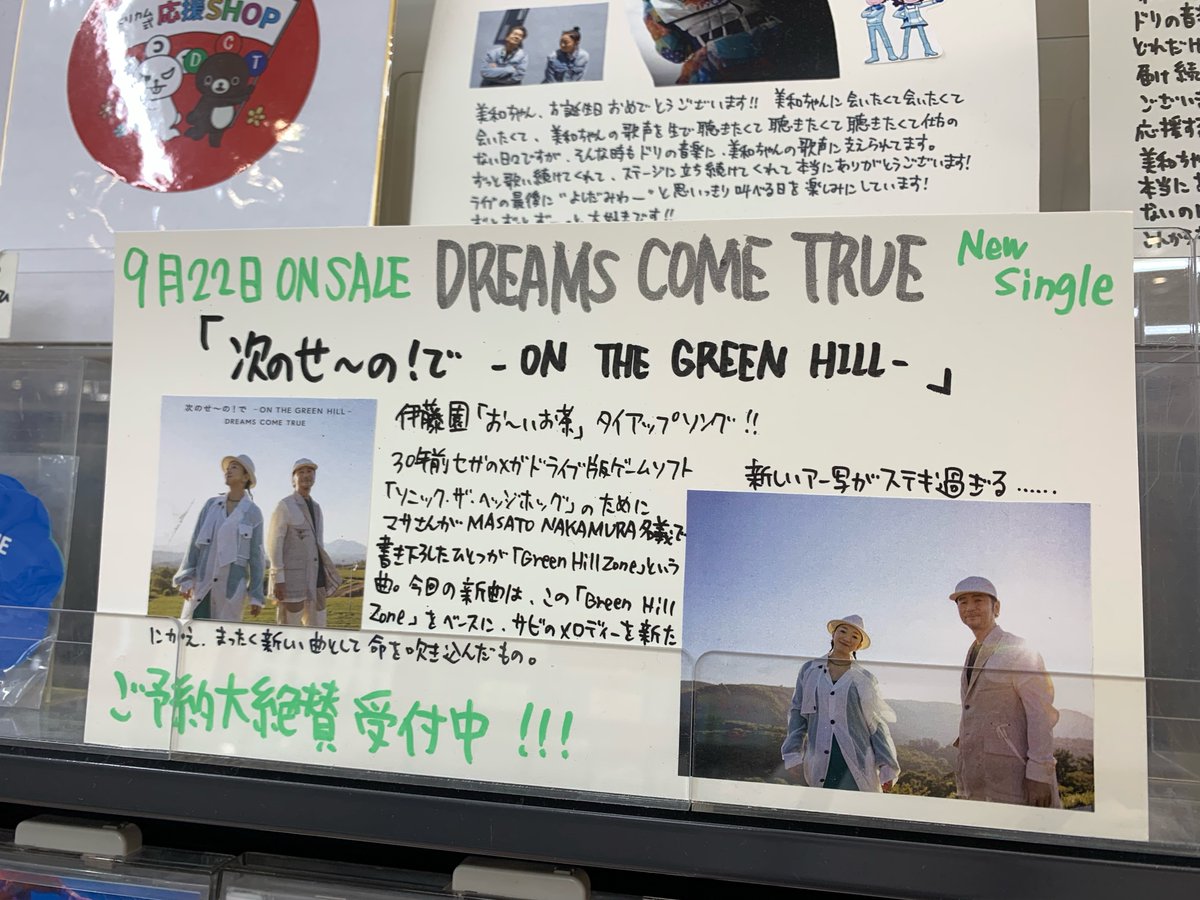 応援SHOP
D C T
美和ちゃん、お誕生日おめでとうございます!! 美和ちゃんに会いたくて会いたくて
会いたくて、美和ちゃんの歌声を生で聴きたくて聴きたくて聴きたくて仕方の
ない日々ですが、そんな時もドリの音楽に、美和ちゃんの歌声に支えられてます。
ずっと歌い続けてくれて、ステージに立ち続けてくれて本当にありがとうございます!
ライブの最後に"よしだみわー"と思いっきり叫べる日を楽しみにしています!
大好きです!!
ドリの音
届け続
ござい
応援す
美和ち
本当に
ないの
9月22日 ON SALE DREAMS COME TRUE New Single
「次のせ〜の!で - ON THE GREEN HILL - 」
次のせ〜の!で - ON THE GREEN HILL -
DREAMS COME TRUE
伊藤園「お〜いお茶」タイアップソング!!
30年前セガのメガドライブ版ゲームソフト
「ソニック・ザ・ヘッジホッグ」のために
マサさんがMASATO NAKAMURA名義で
書き下ろしたひとつが「Green Hill Zone」という
曲。今回の新曲は、この「Green Hill
Zone」をベースに、サビのメロディーを新た
にかえ、まったく新しい曲として命を吹き込んだもの。
新しいアー写がステキ過ぎる……
ご予約大絶賛受付中!!!